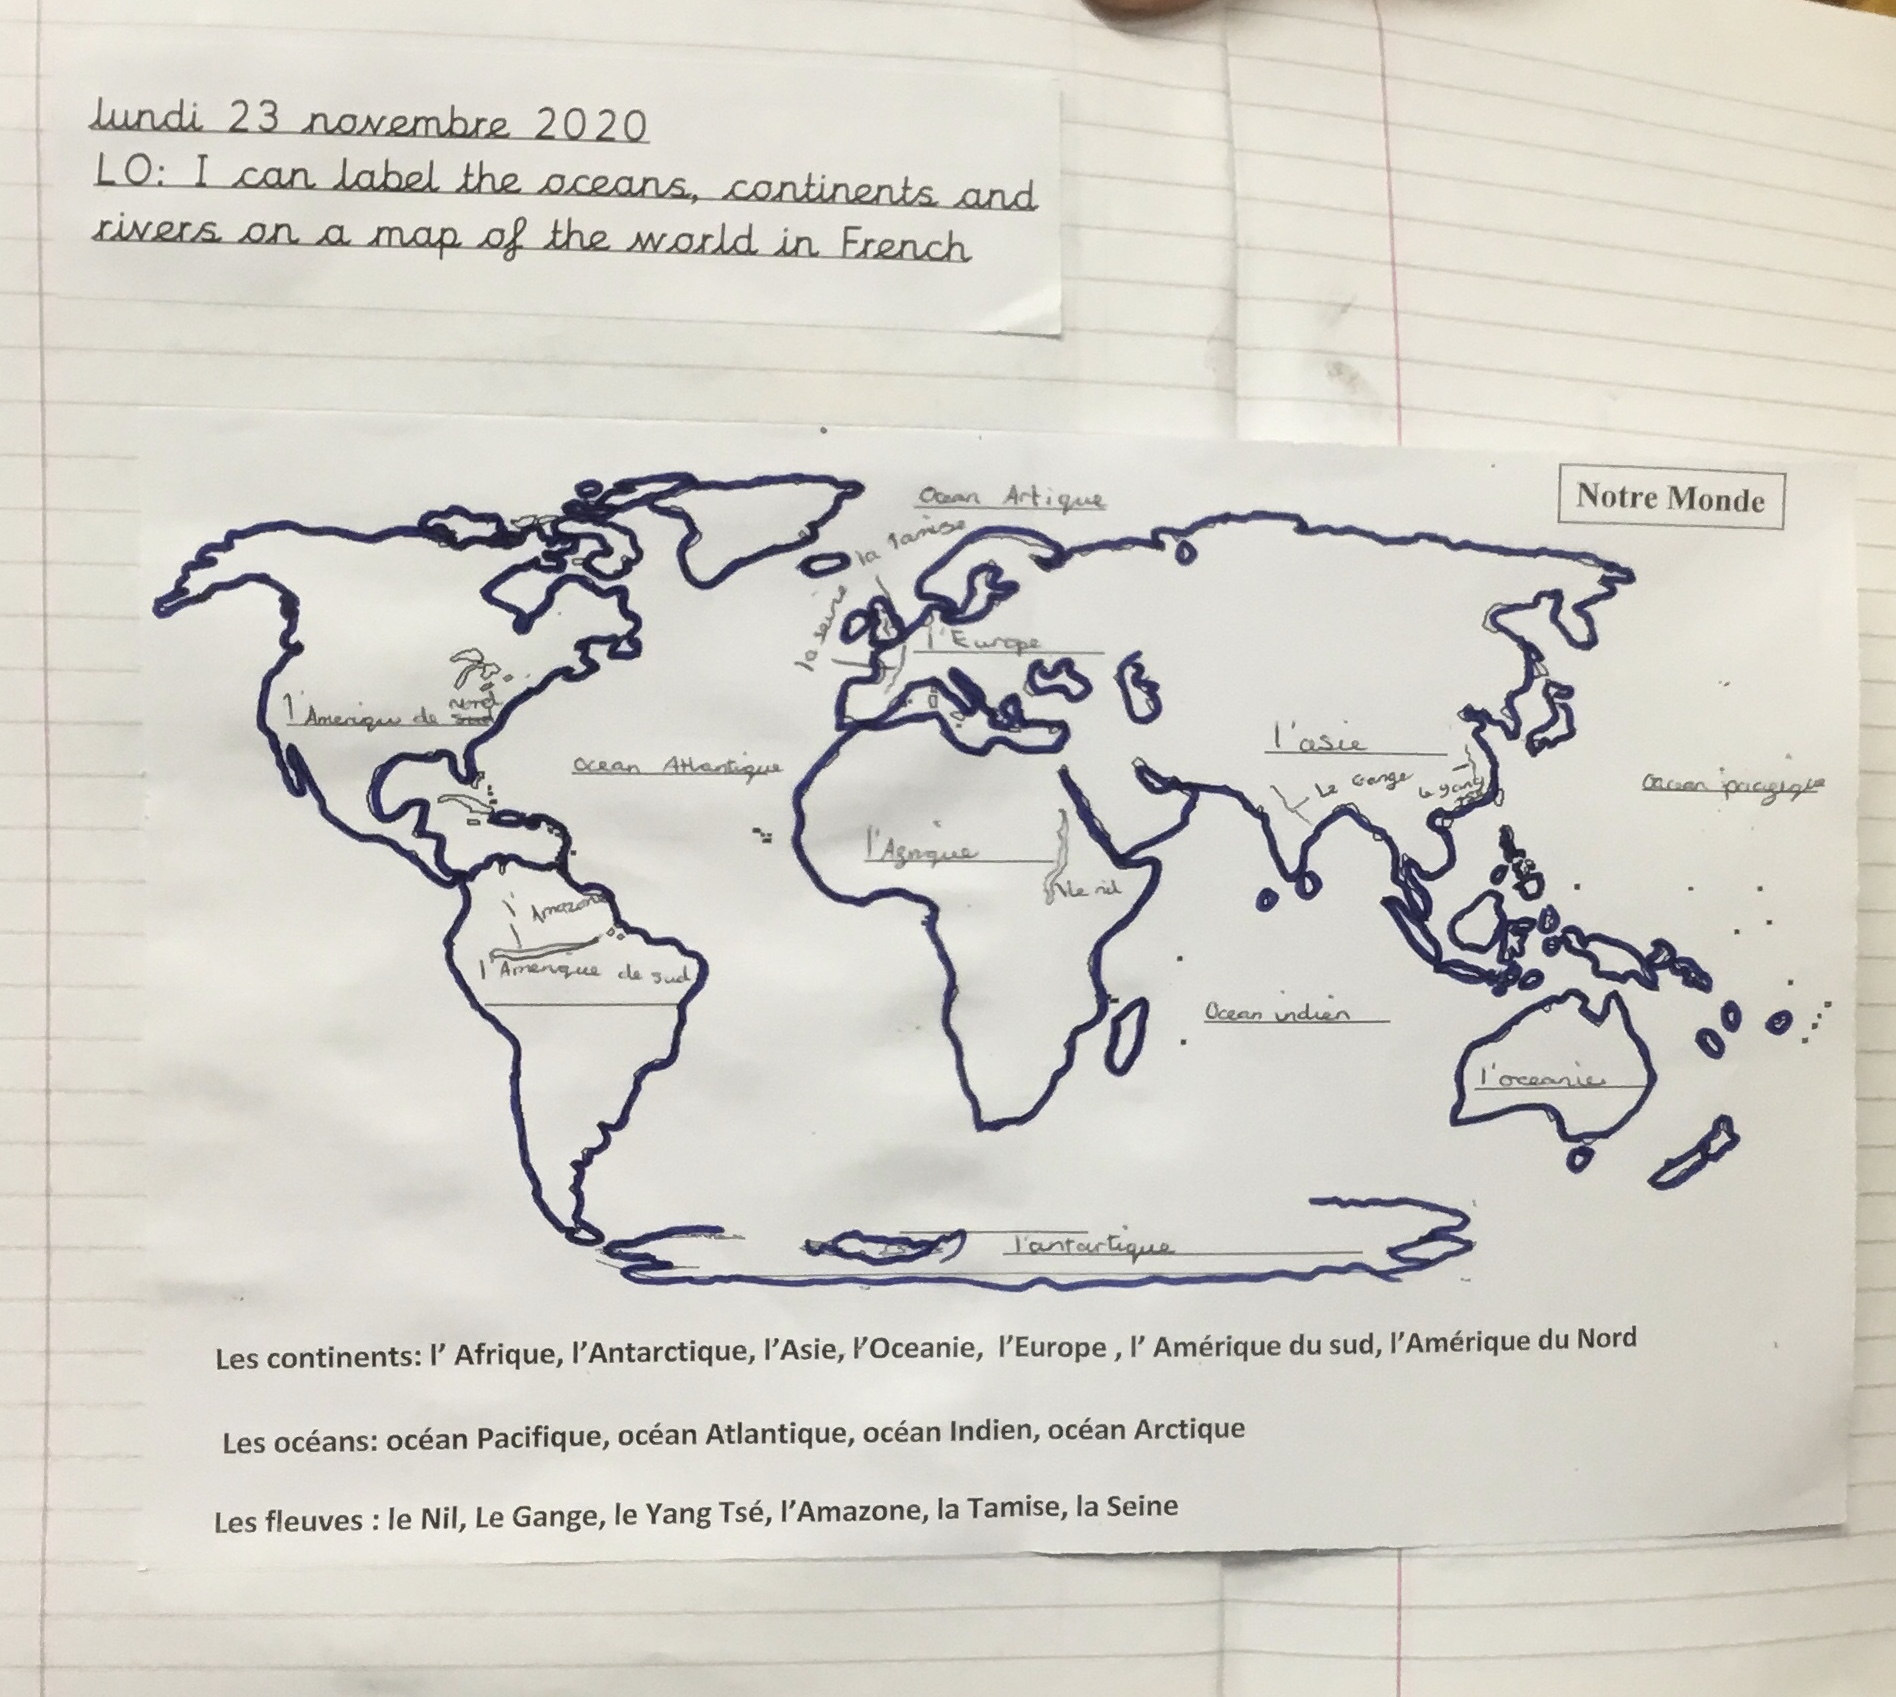 lundi 23 novembre 2020
LO: I can label the oceans, continents and
rivers on a map of the world in French
Notre Monde
Ocean Artique
la Tamise
la seine
l'Europe
l'Amerique de Nord
Ocean Atlantique
l'asie
Le Gange
Le yang
Ocean pacifique
l'Afrique
Le nil
l'Amazone
l'Amerique de sud
Ocean indien
l'oceanie
l'antartique
Les continents: l' Afrique, l'Antarctique, l'Asie, l'Oceanie, l'Europe , l' Amérique du sud, l'Amérique du Nord
Les océans: océan Pacifique, océan Atlantique, océan Indien, océan Arctique
Les fleuves : le Nil, Le Gange, le Yang Tsé, l'Amazone, la Tamise, la Seine